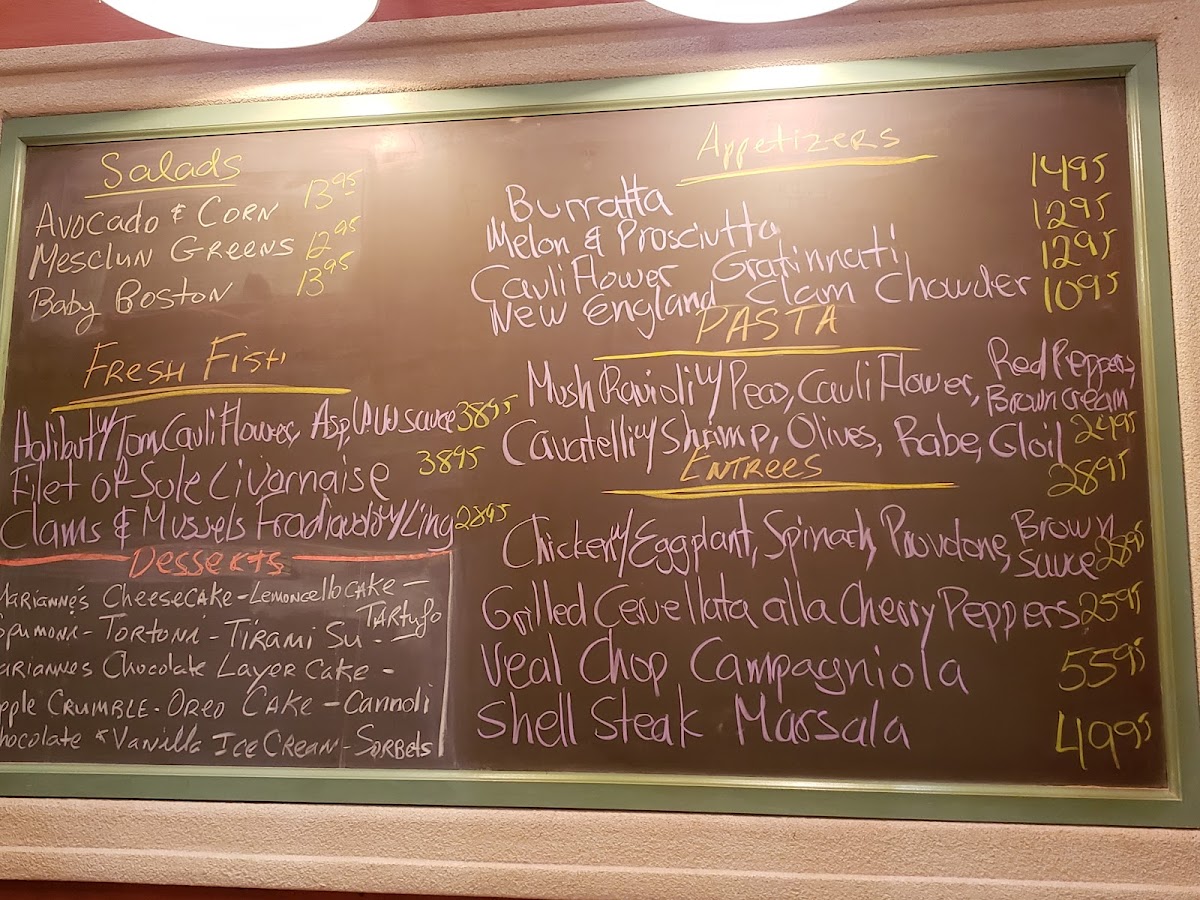 Salads
AVOCADO & CORN 13 95
MESCLUN GREENS 12 95
Baby BOSTON 13 95
FRESH FISH
Halibut w/ Tom, CauliFlower, Asp, sauce 3895
Filet of Sole Livornaise 3895
Clams & Mussels Fradiavolo w/ Ling 2895
Desserts
MARIANNE'S CHEESECAKE - LEMONCELLO CAKE -
TARTUfO
Spumoni - TORTONI - TIRAMI SU -
MARIANNES CHOCOLATE LAYER CAKE -
Apple CRUMBLE - OREO CAKE - CANNOLI
Chocolate & VANILLA ICE CREAM - SORBETS
Appetizers
Burratta 1495
Melon & Prosciutto 1295
CauliFlower Gratinnati 1295
New England Clam Chowder 1095
PASTA
Mush Ravioli w/ Peas, CauliFlower, Red Peppers,
Brown cream 2495
Cavatelli w/ Shrimp, Olives, Rabe, Gloil 2895
ENTREES
Chicken w/ Eggplant, Spinach, Provolone, Brown
Sauce 2895
Grilled Cervellata alla Cherry Peppers 2595
Veal Chop Campagniola 5595
Shell Steak Marsala 4995